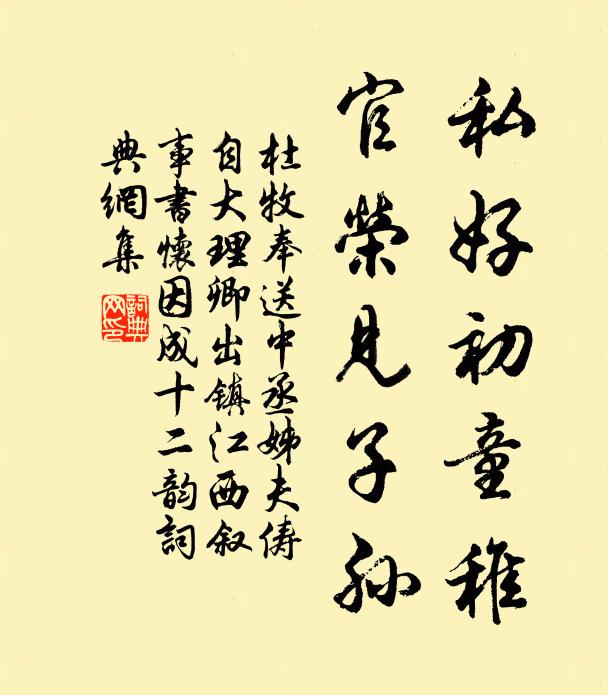 私好初童稚
官榮見子孙
杜牧奉送中丞姊夫俦
自大理卿出镇江西叙
事書懷因成十二韵詞
典網集
詞典网印